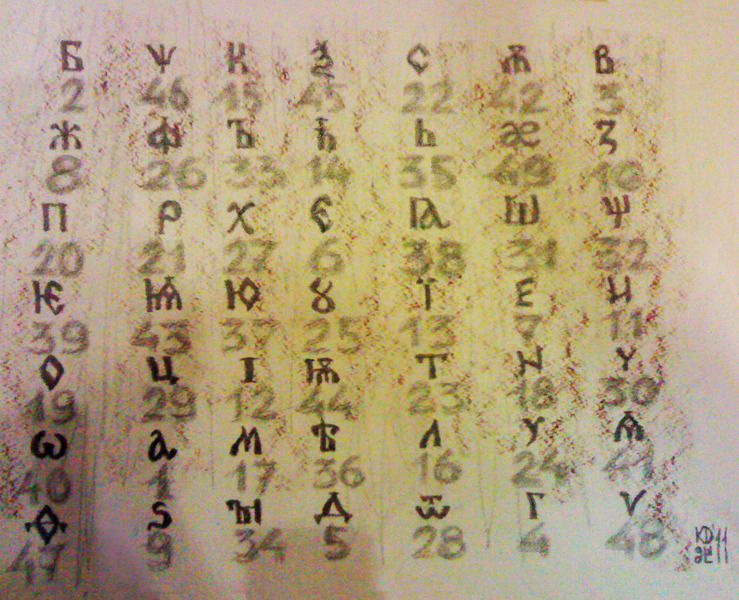 Б Ѱ К Ѯ С Ѫ В
2 46 15 45 22 42 3
Ж Ф Ъ Ћ Ь Ӕ З
8 26 33 14 35 49 10
П Р Х Є Ꙗ Ш Щ
20 21 27 6 38 31 32
Ѥ Ѩ Ю Ȣ Ї Е И
39 43 37 25 13 7 11
О Ц І Ѭ Т Н Ч
19 29 12 44 23 18 30
Ѡ а М Ѣ Л У Ѧ
40 1 17 36 16 24 41
Ѳ Ѕ Ꙑ Д Ѿ Г Ѵ
47 9 34 5 28 4 48